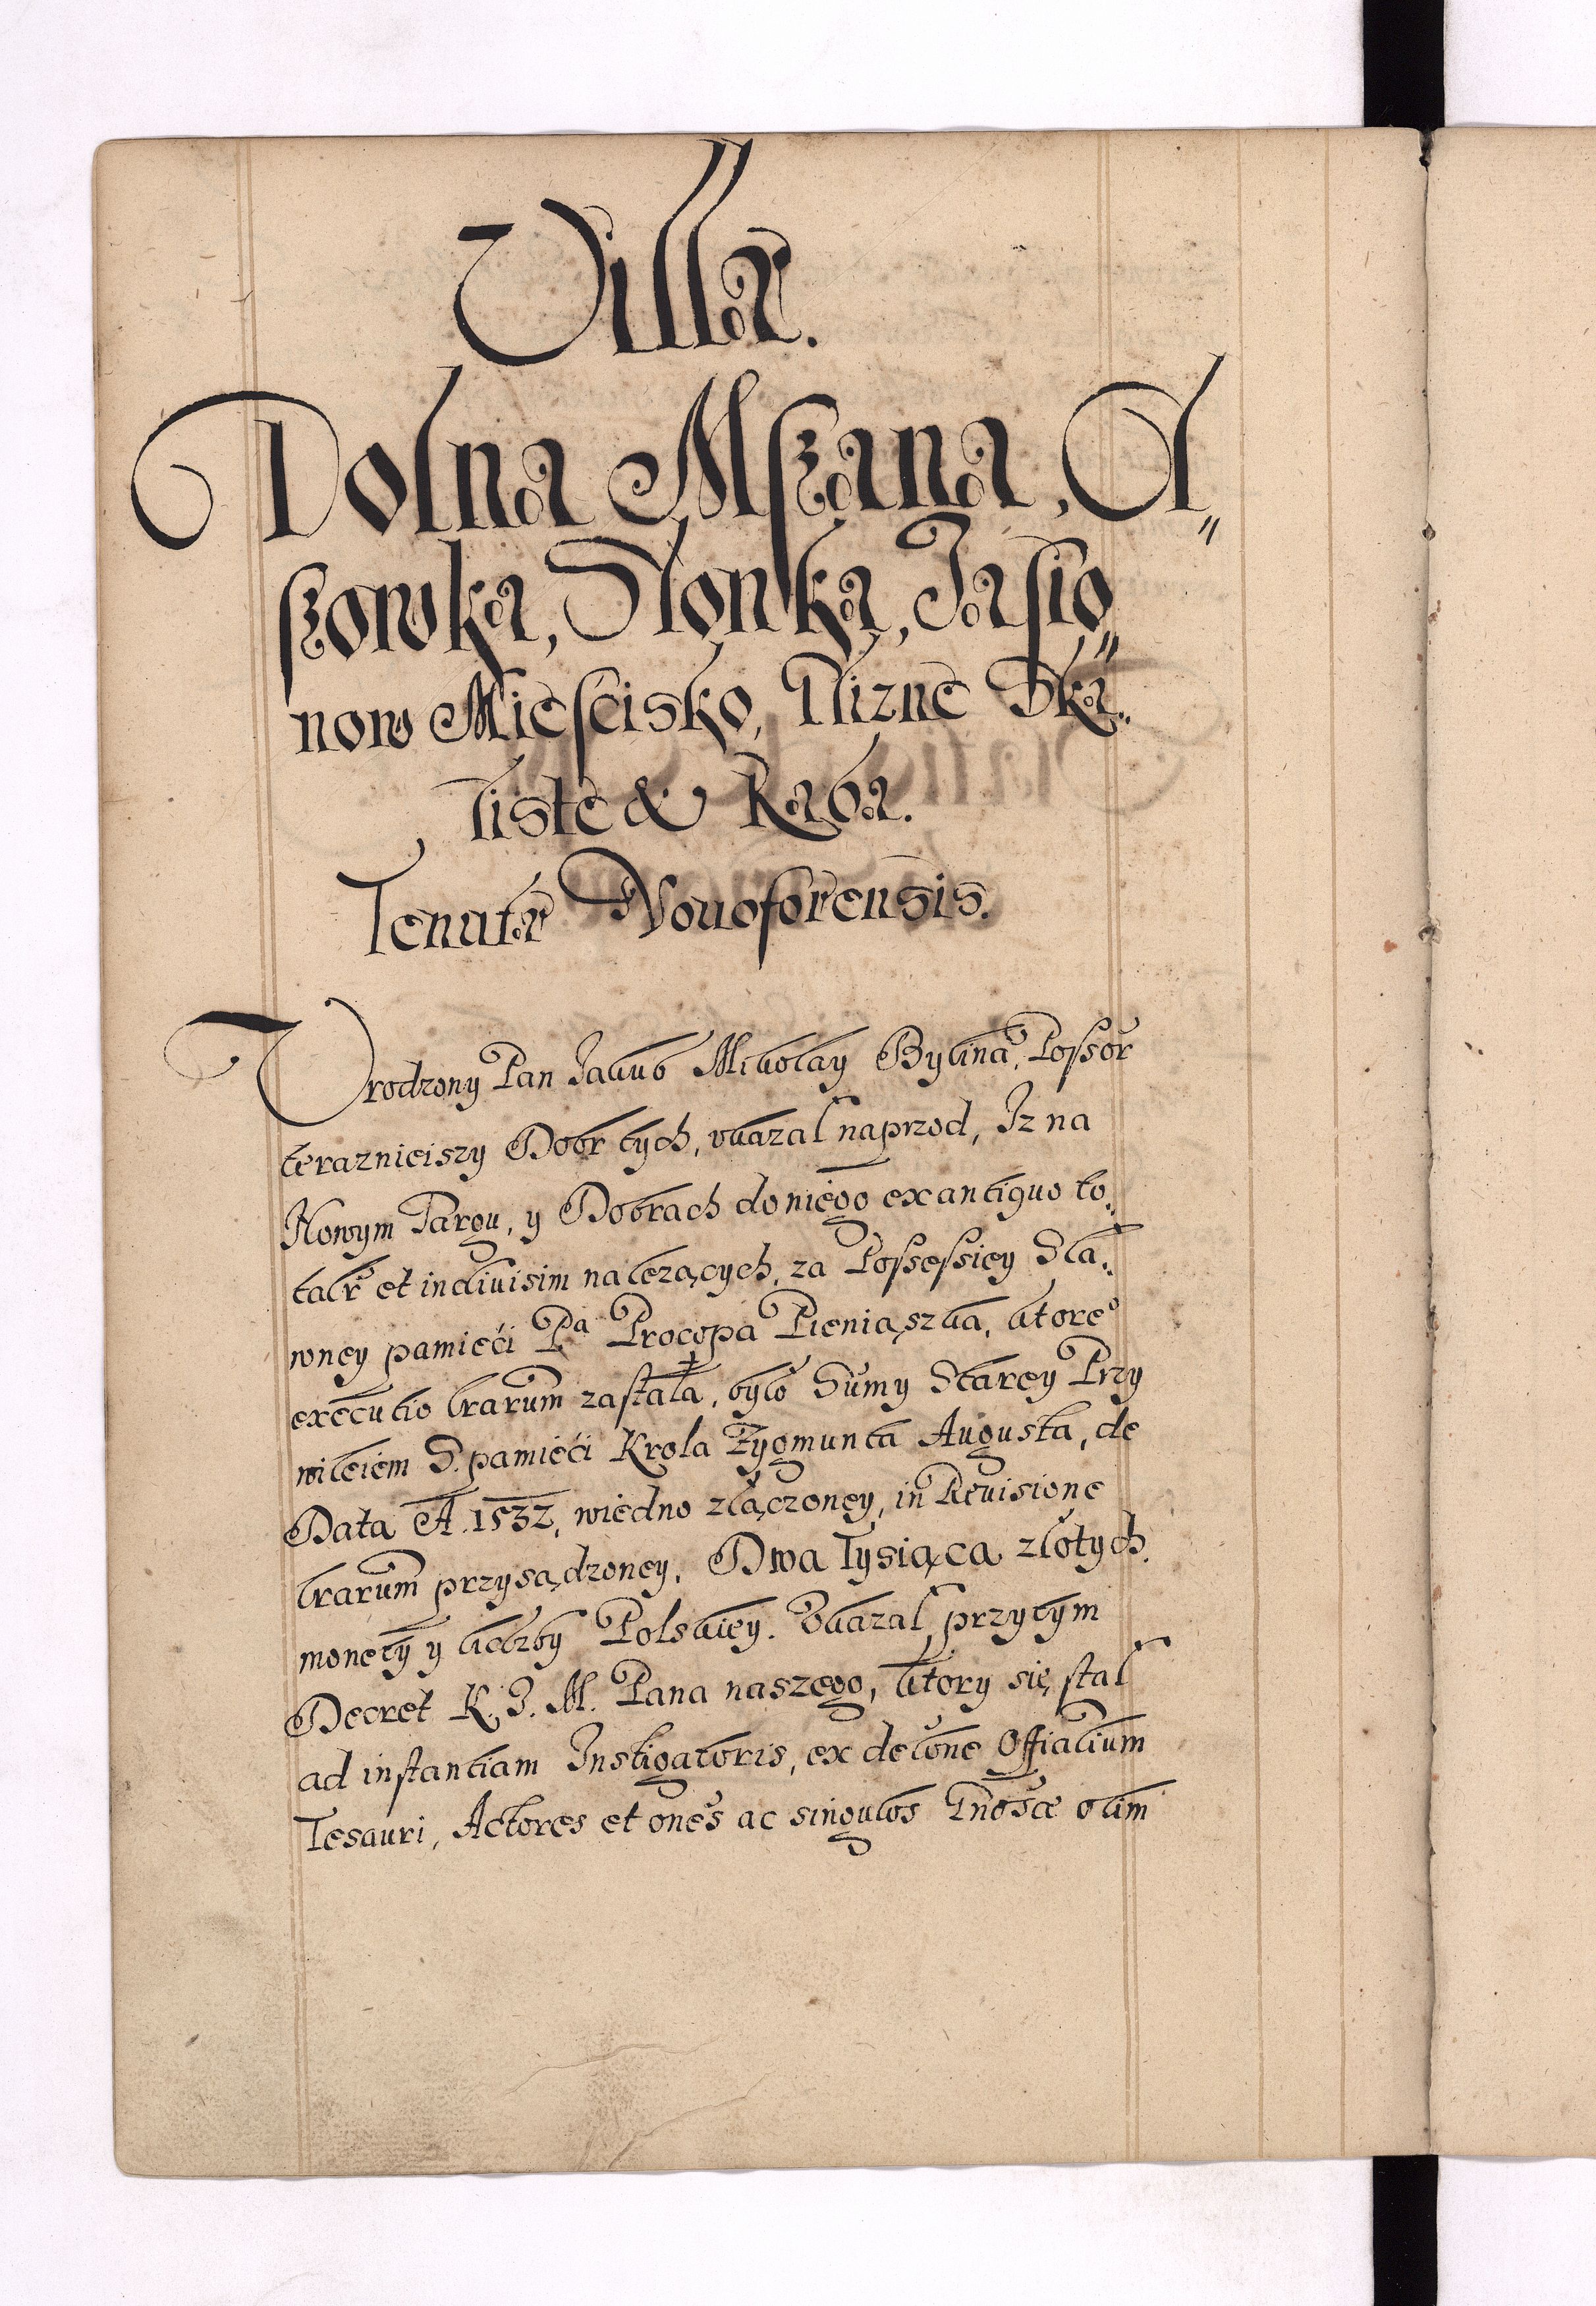 Villæ.
Dolna Mszana, Ol„
szowka, Słonka, Jasio„
now Miescisko, Nizne Ska„
liste & Raba.
Tenutæ Nouoforensis.
Vrodzony Pan Jakub Mikolay Bylina, Possor
terazniciszy Dobr tych, vkazal naprzod, Iz na
Nowym Targu, y Dobrach do niego ex antiquo to„
talr et indiuisim nalezących, za Possessiey Sla„
wney pamięći Pa Procopa Pieniąszka, ktore
executio lrarum zastała, było Sumy Starey Przy
wileiem S. pamięći Krola Zygmunta Augusta, de
Data A. 1532, wiedno złączoney, in Reuisione
lrarum przysądzoney, Dwa Tysiąca złotych
monety y liczby Polskiey. Vkazal przytym
Decret K. J. M. Pana naszego, ktory się stal
ad instantiam Instigatoris, ex delone Officalium
Tesauri, Actores et ones ac singulos olim